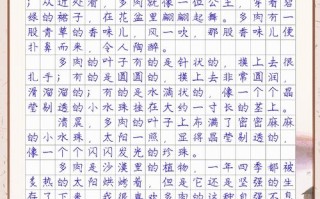 ；从近处看，多肉像一位公主，穿着碧
娘的裙子，在花盆里翩翩起舞。多肉有一
股青草的香味儿，风一吹，那股香味儿便
扑鼻而来，令人陶醉。
多肉的叶子有的是针状的，摸上去很
扎手；有的是圆圆的，摸上去非常圆润，
滑溜溜的；有的是水滴状的，像一个个晶
莹剔透的小水珠挂在大约一寸长的茎上。
清晨，多肉的叶子上布满了密密麻麻
的小水珠，太阳一照，显得晶莹剔透的，
像一个个闪闪发光的珍珠。
多肉是沙漠里的植物，一年四季都被
炙热的太阳烘烤着，但是它还是坚强的生
存了下来，我